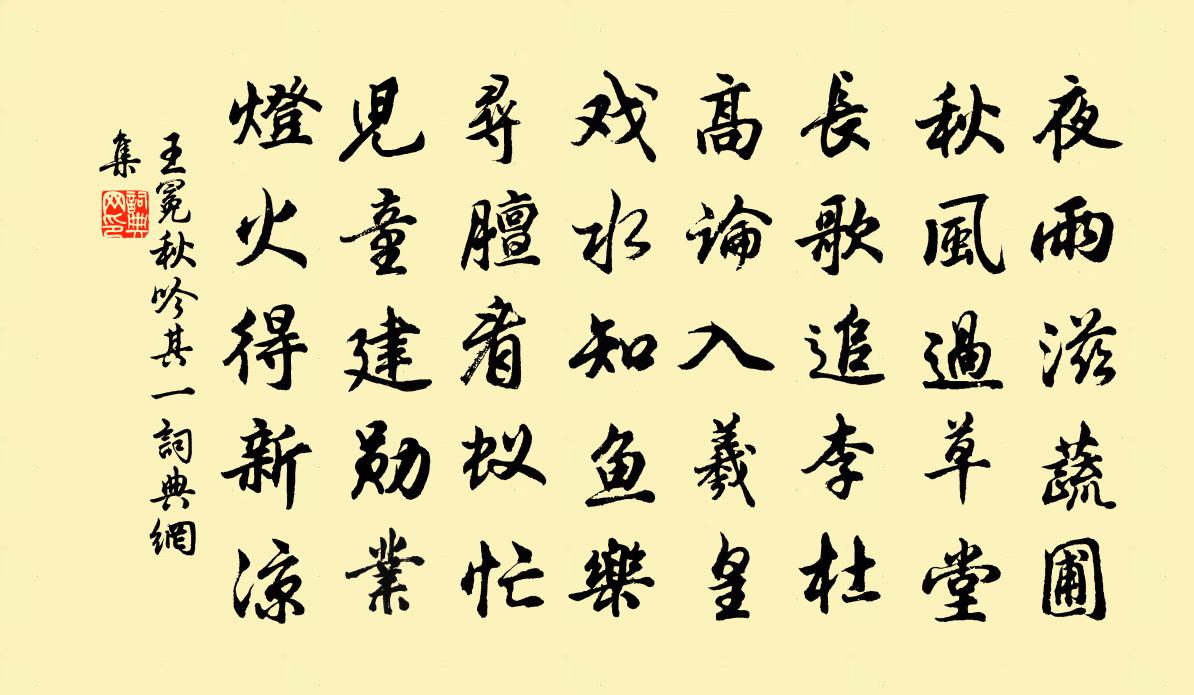 夜雨滋蔬圃
秋風過草堂
長歌追李杜
高論入羲皇
戏水知鱼樂
尋膻看蚁忙
児童建勋業
燈火得新凉
王冕秋吟其一詞典網
集
詞典网印